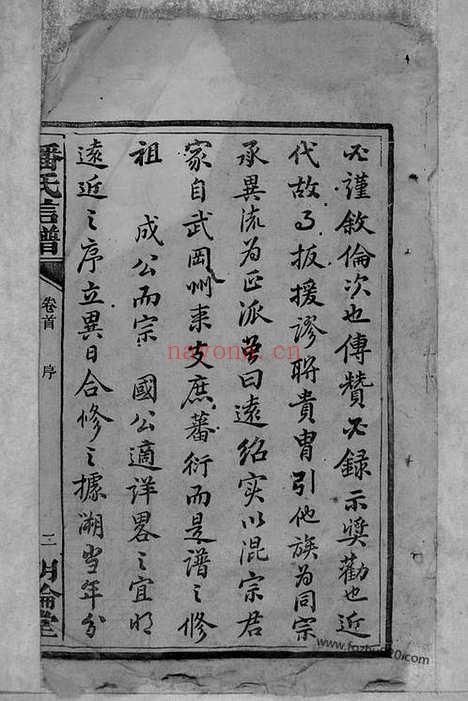 必謹敘倫次也傳贊必録示奨勸也近
代故事扳援謬聨貴胄引他族為同宗
承異流為正派名曰遠紹实以混宗君
家自武岡州来支庶蕃衍而是譜之修
祖 成公而宗 國公適詳畧之宜明
遠近之序立異日合修之據溯當年分
潘氏信譜
卷首 序
二
明倫堂
nayona.cn
www.fozhu920.com